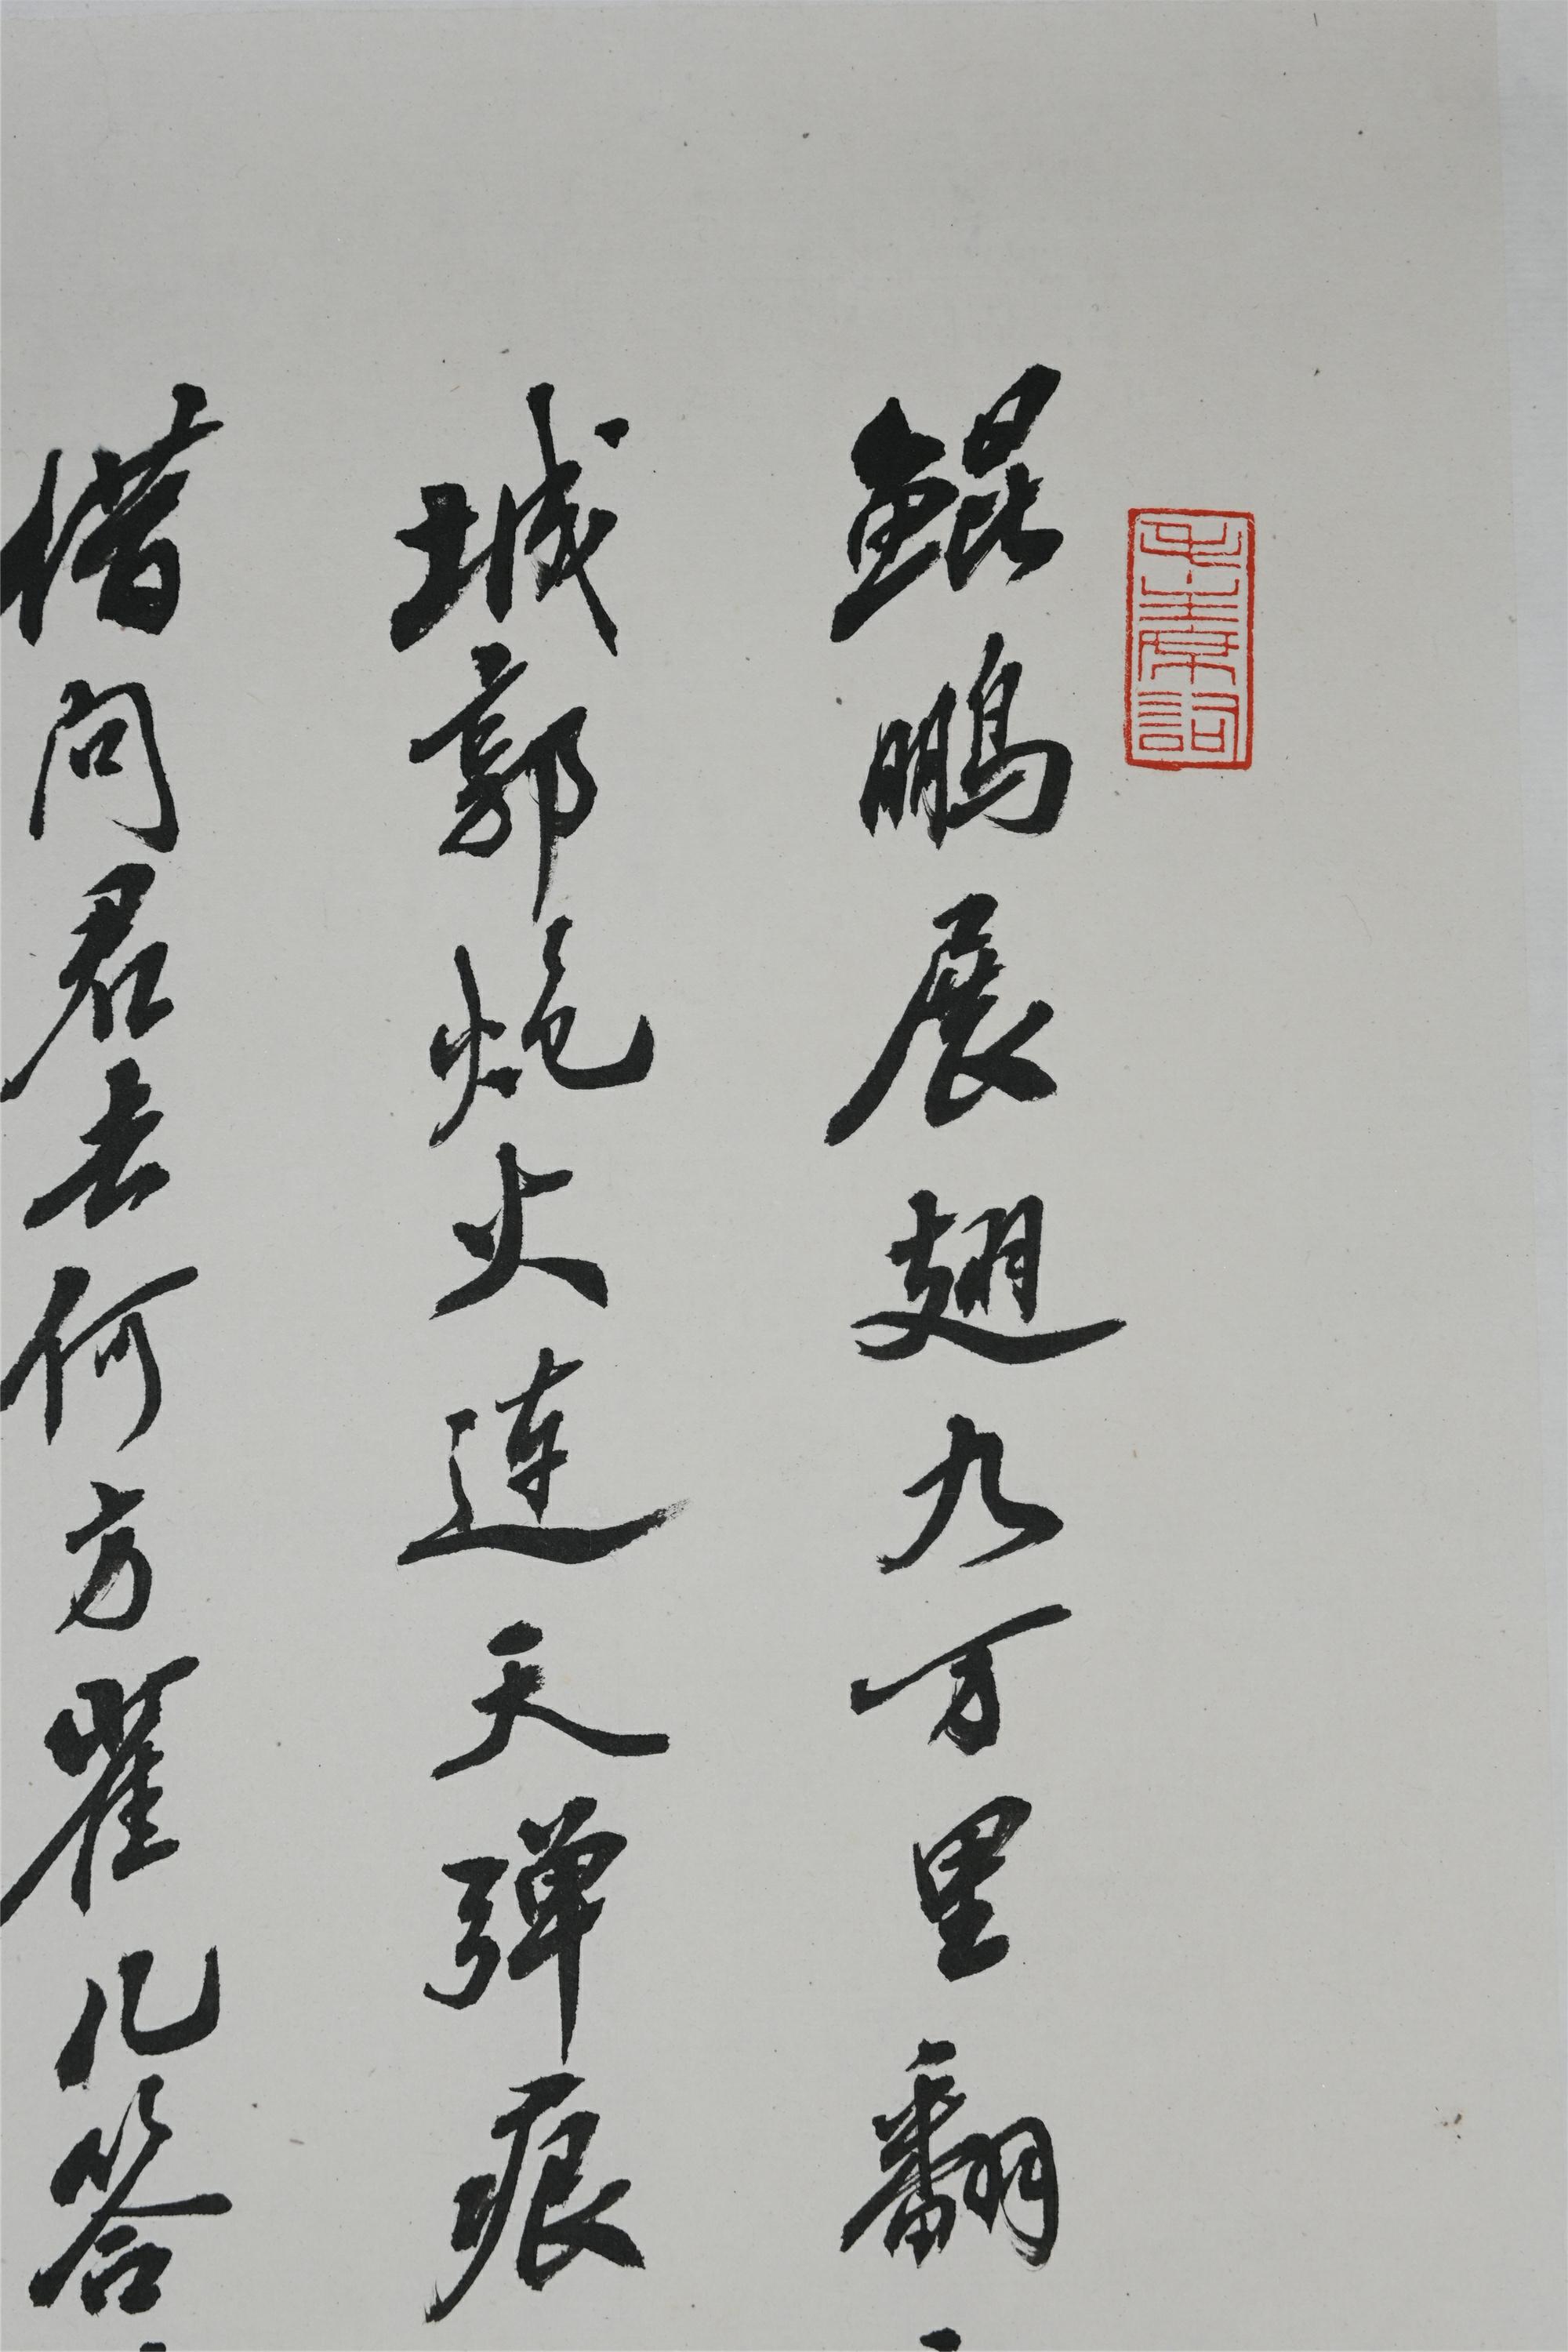 毛主席詞
鲲鹏展翅九万里翻
城郭炮火連天弹痕
借问君去何方雀儿答